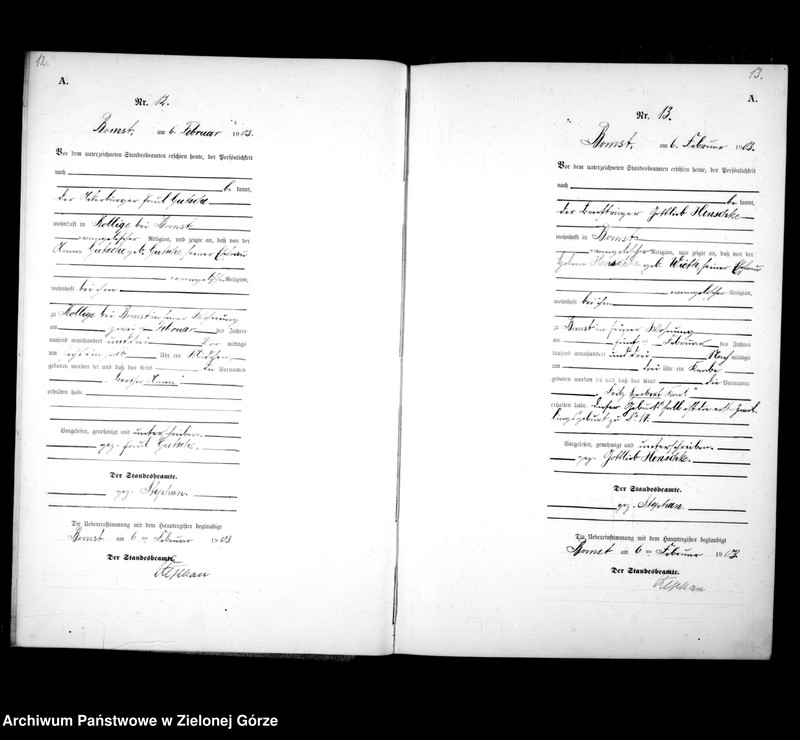 12.
A.
Nr. 12.
Bomst, am 6. Februar 1903.
Vor dem unterzeichneten Standesbeamten erschien heute, der Persönlichkeit
nach
be kannt,
der Ackerbürger Paul Gutsche
wohnhaft in Kollige bei Bomst
evangelischer Religion, und zeigte an, daß von der
Anna Gutsche geb. Gutsche, seiner Ehefrau
evangelischer Religion,
wohnhaft bei ihm
zu Kollige bei Bomst in seiner Wohnung
am Februar des Jahres
tausend neunhundert und drei Vor mittags
um Uhr ein Mädchen
geboren worden sei und daß das Kind die Vornamen
Anna
erhalten habe.
Vorgelesen, genehmigt und unterschrieben.
gez. Paul Gutsche.
Der Standesbeamte.
gez. Stephan.
Die Uebereinstimmung mit dem Hauptregister beglaubigt
Bomst am 6 ten Februar 1903
Der Standesbeamte.
Stephan
13.
A.
Nr. 13.
Bomst, am 6. Februar 1903.
Vor dem unterzeichneten Standesbeamten erschien heute, der Persönlichkeit
nach
be kannt,
der Briefträger Gottlieb Henschke
wohnhaft in Bomst
evangelischer Religion, und zeigte an, daß von der
Henschke geb. seiner Ehefrau
evangelischer Religion,
wohnhaft bei ihm
zu Bomst in seiner Wohnung
am fünf ten Februar des Jahres
tausend neunhundert und drei Nach mittags
um drei Uhr ein Knabe
geboren worden sei und daß das Kind die Vornamen
„Fritz Herbert Karl“
erhalten habe. Dieser Geburtsfall ist die erste Zwil-
lingsgeburt zu
Vorgelesen, genehmigt und unterschrieben.
gez. Gottlieb Henschke.
Der Standesbeamte.
gez. Stephan.
Die Uebereinstimmung mit dem Hauptregister beglaubigt
Bomst am 6 ten Februar 1903.
Der Standesbeamte.
Stephan
Archiwum Państwowe w Zielonej Górze